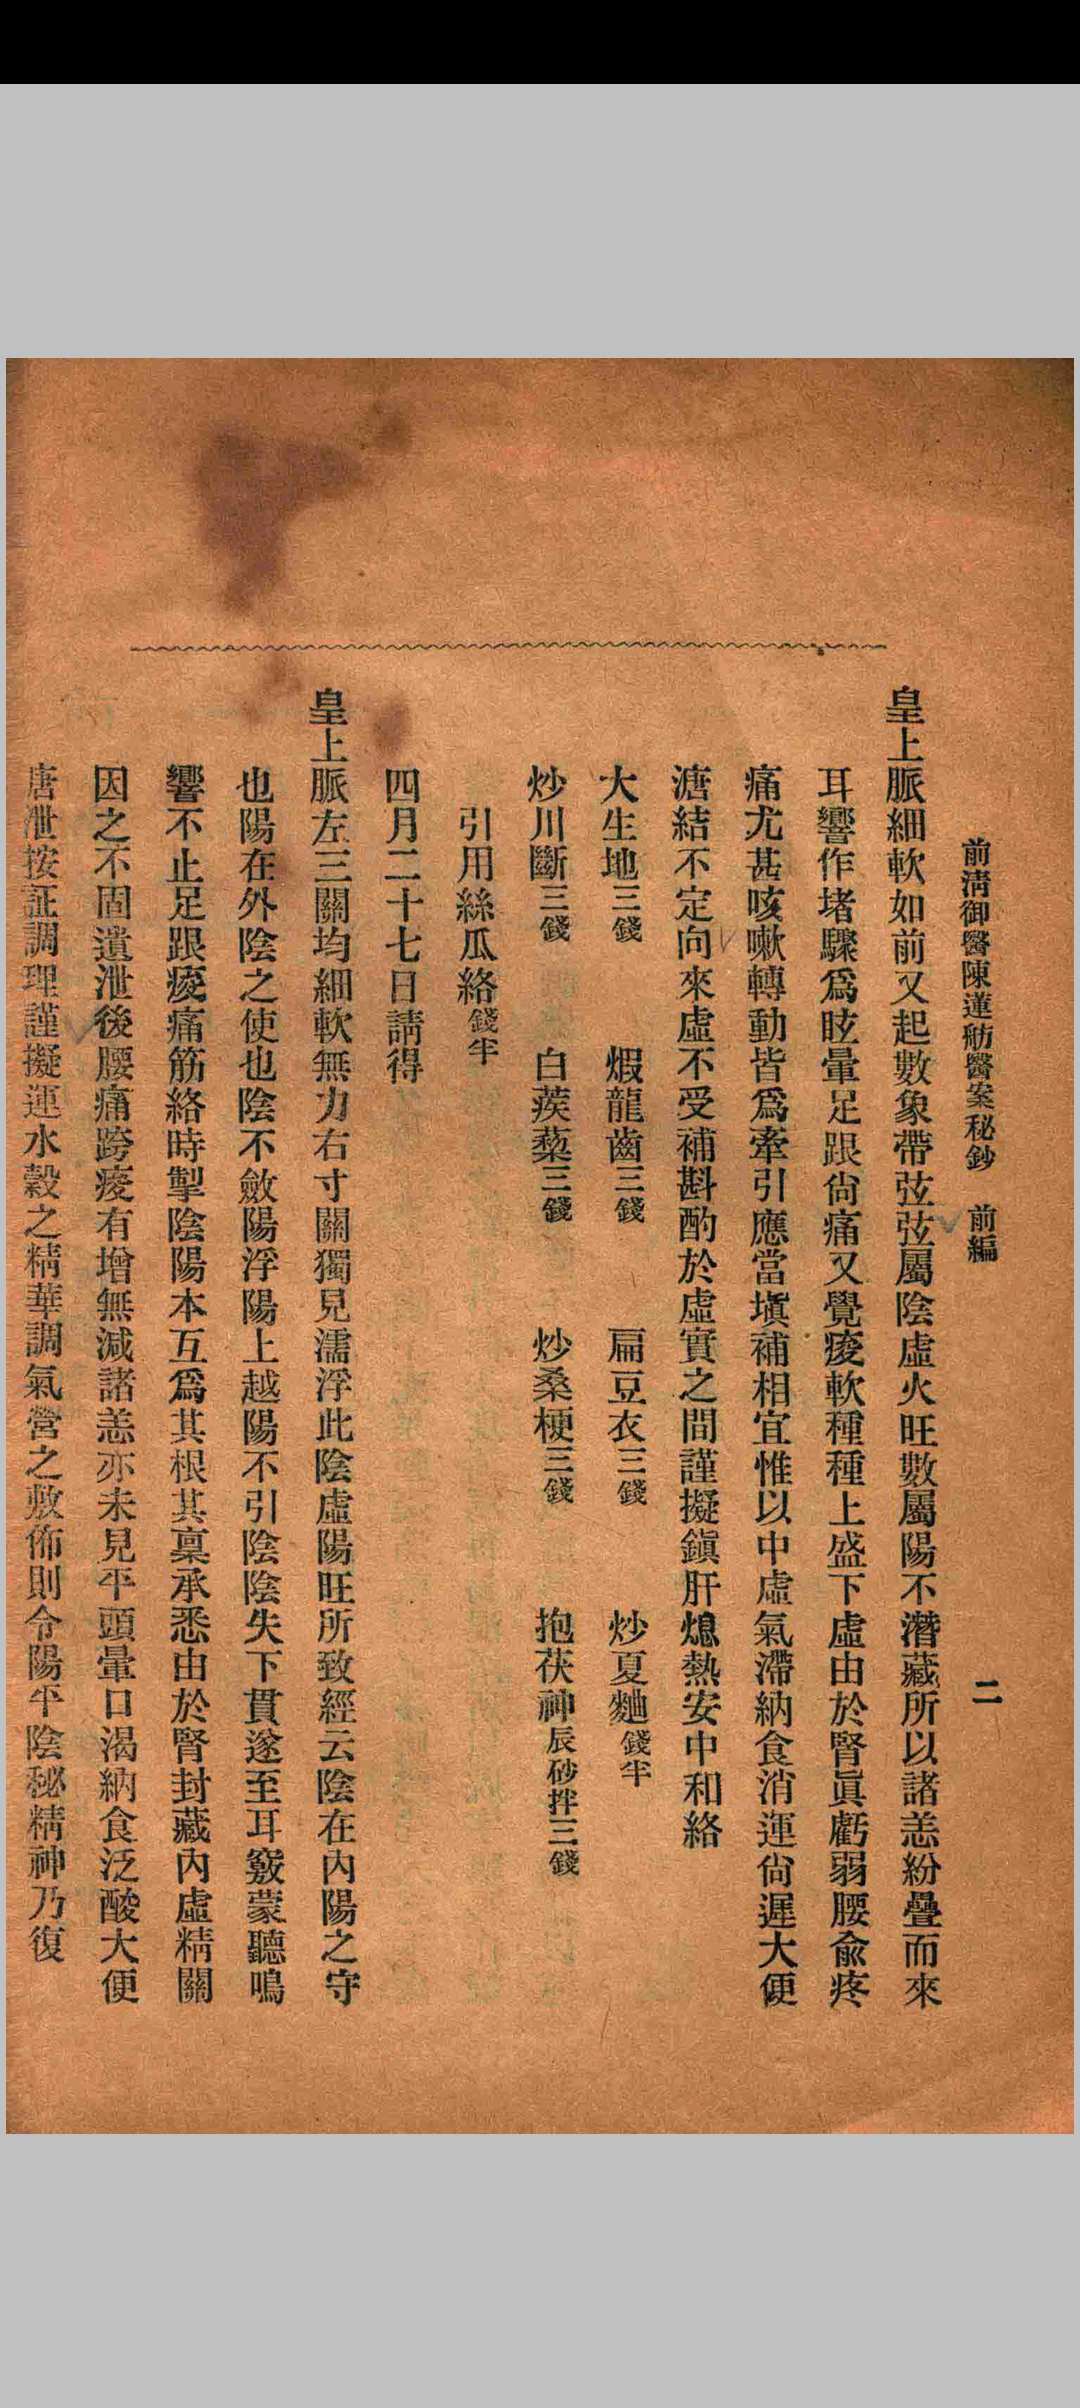 前淸御醫陳蓮舫醫案秘鈔　前編　二
皇上脈細軟如前又起數象帶弦弦屬陰虛火旺數屬陽不潛藏所以諸恙紛疊而來
耳響作堵驟爲眩暈足跟尙痛又覺痠軟種種上盛下虛由於腎眞虧弱腰兪疼
痛尤甚咳嗽轉動皆爲牽引應當塡補相宜惟以中虛氣滯納食消運尙遲大便
溏結不定向來虛不受補斟酌於虛實之間謹擬鎭肝熄熱安中和絡
大生地三錢　煆龍齒三錢　扁豆衣三錢　炒夏麯錢半
炒川斷三錢　白蒺藜三錢　炒桑梗三錢　抱茯神辰砂拌三錢
引用絲瓜絡錢半
四月二十七日請得
皇上脈左三關均細軟無力右寸關獨見濡浮此陰虛陽旺所致經云陰在內陽之守
也陽在外陰之使也陰不斂陽浮陽上越陽不引陰陰失下貫遂至耳竅蒙聽鳴
響不止足跟痠痛筋絡時掣陰陽本互爲其根其稟承悉由於腎封藏內虛精關
因之不固遺泄後腰痛跨痠有增無減諸恙亦未見平頭暈口渴納食泛酸大便
唐泄按証調理謹擬運水穀之精華調氣營之敷佈則令陽平陰秘精神乃復